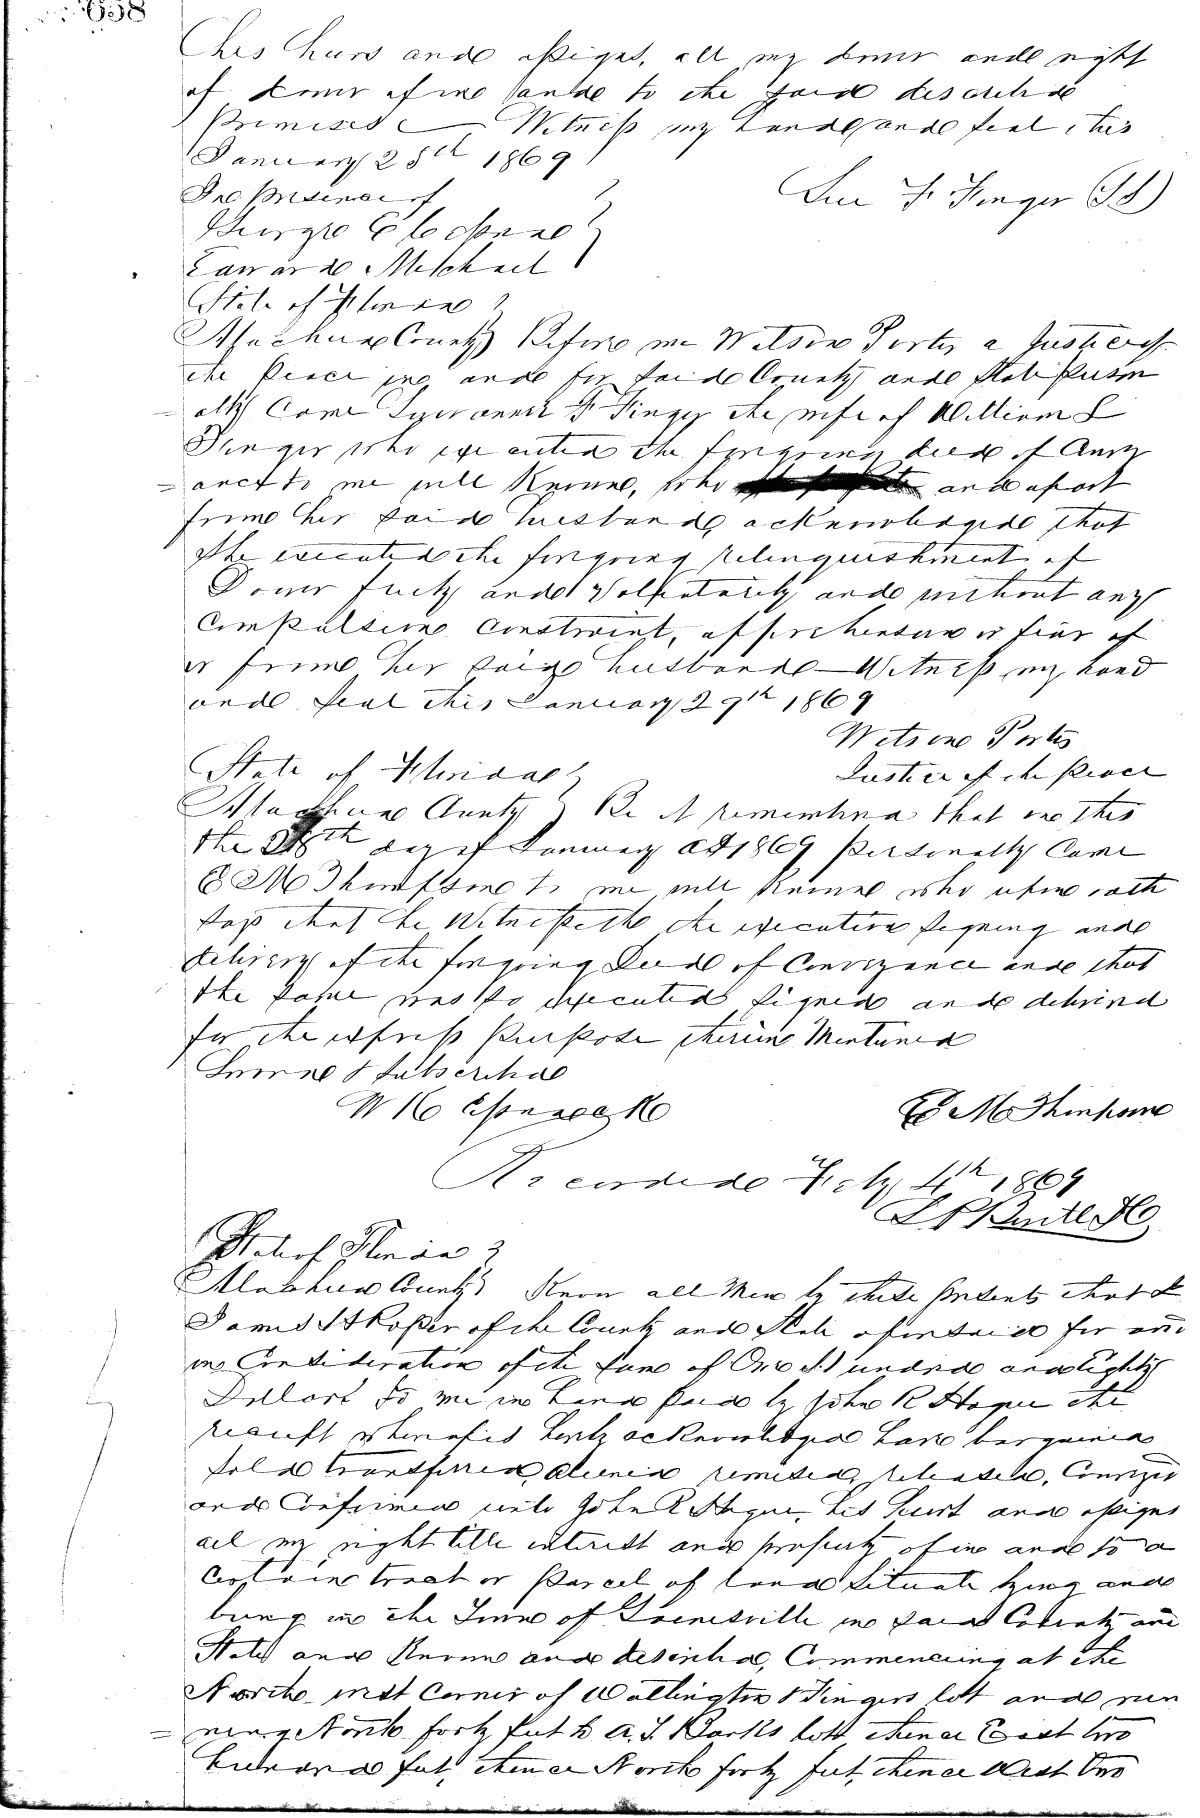 658
his heirs and assigns, all my dower and right
of dower of in and to the said described
Premises Witness my hand and seal this
January 28th 1869
In presence of
George C
Edward Mitchael
Sue F Finger (LS)
State of Florida
Alachua County Before me Watson Porter a Justice of
the Peace in and for said County and State person
ally Came F Finger the wife of William L
Finger who executed the foregoing deed of Convey
ance to me well Known, who and apart
from her said husband, acknowledged that
she executed the foregoing relinquishment of
Dower freely and Voluntarily and without any
Compulsion Constraint, apprehension or fear of
or from her said husband – Witness my hand
and seal this January 29th 1869
Watson Porter
Justice of the Peace
State of Florida
Alachua County Be it remembered that on this
the 28th day of January AD 1869 Personally Came
E M Thompson to me well Known who upon oath
says that he Witnesseth the execution signing and
delivery of the foregoing Deed of Conveyance and that
the same was so executed signed and delivered
for the express Purpose therein Mentioned
Sworn & subscribed
W K
E M Thompson
Recorded Feby 4th 1869
State of Florida
Alachua County Know all Men by these presents that I
James of the County and State aforesaid for and
in Consideration of the sum of One Hundred and Eighty
Dollars to me in hand paid by John R Hague the
receipt whereof is hereby acknowledged have bargained
sold transferred, aliened remised, released, Conveyed
and Confirmed unto John R Hague, his heirs and assigns
all my right title interest and property of in and to a
Certain tract or Parcel of land situate lying and
being in the Town of Gainesville in said County and
State and Known and described, Commencing at the
North west Corner of Wallington & Fingers lott and run
ning North forty feet to A. J. Barks lott thence East two
hundred feet, thence North forty feet, thence West two